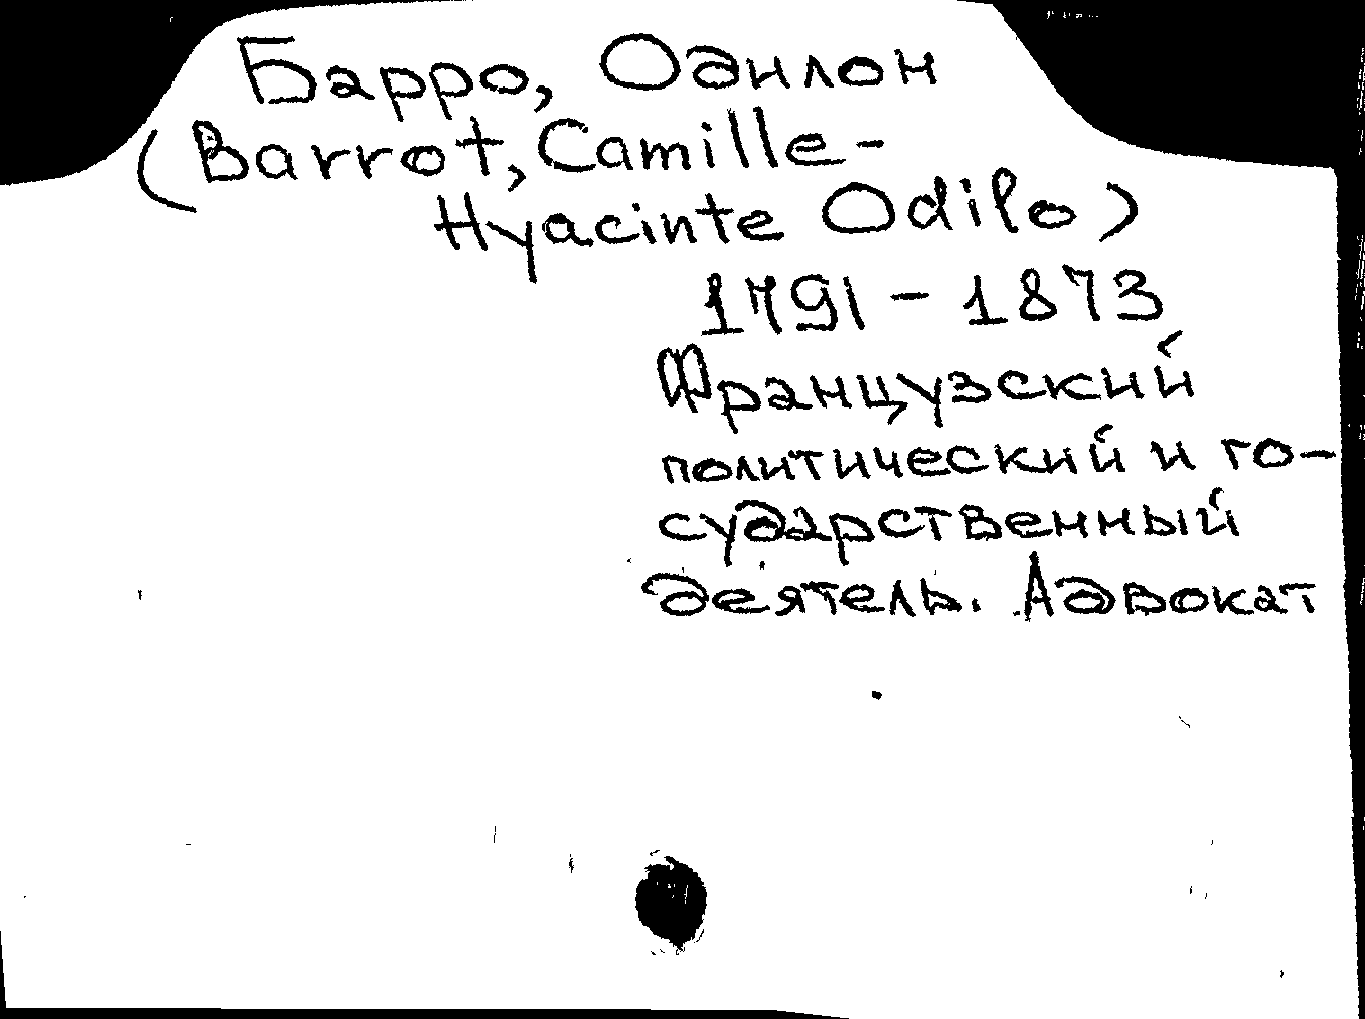 Барро, Одилон
(Barrot, Camille-
Hyacinte Odilo)
1791 - 1873
Французский
политический и го-
сударственный
деятель. Адвокат